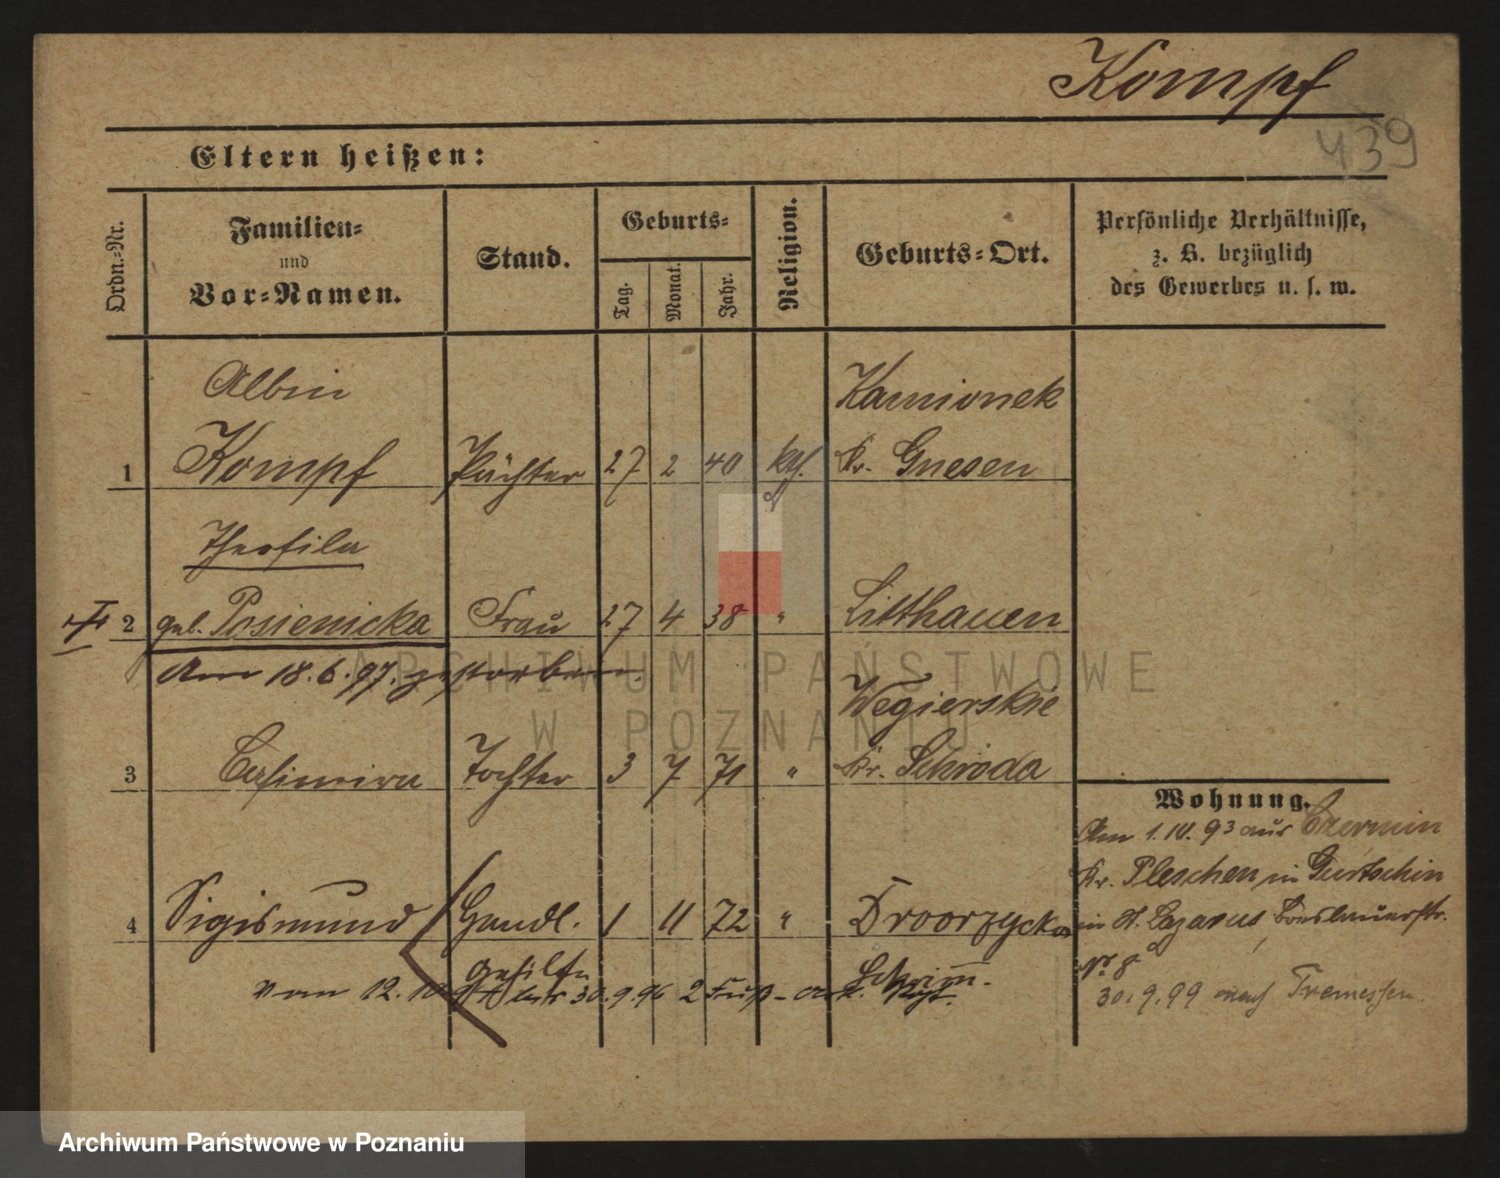 Kompf
439
Eltern heißen:
Ordn.-Nr.
Familien-
und
Vor-Namen.
Stand.
Geburts-
Tag.
Monat.
Jahr.
Religion.
Geburts-Ort.
Persönliche Verhältnisse,
z. B. bezüglich
des Gewerbes u. s. w.
Albin Kamionek
1 Kompf Pächter 27 2 40 kth. Kr. Gnesen
Theofila
2 geb. Posienicka Frau 27 4 38 " Litthauen
Am 18.6.97. gestorben.
Wegierskie
3 Casimira Tochter 3 7 71 " Kr. Schroda
Wohnung.
Am 1.IV.93 aus Czermin
Kr. Pleschen in Gurtschin
4 Sigismund Handl. 1 11 72 "
in St. Lazarus,
Gehilfe Schrimm.
Nr 8
vom 12.10. bis 30.9.96 2 Fuß-
30.9.99 nach Tremessen.
ARCHIWUM PAŃSTWOWE
W POZNANIU
Archiwum Państwowe w Poznaniu